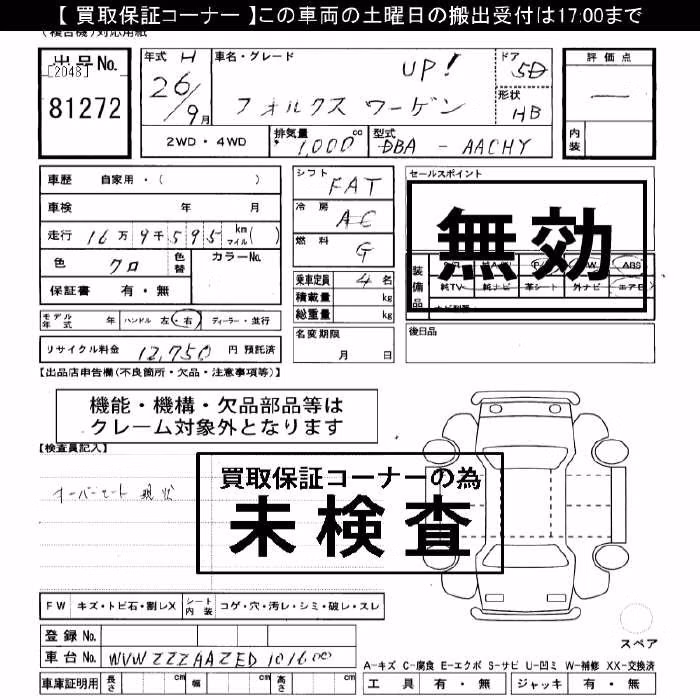 【 買取保証コーナー 】この車両の土曜日の搬出受付は17:00まで
(複合機)対応用紙
出品No.
[2048]
81272
年式 H
26/9月
車名・グレード
UP!
フォルクス ワーゲン
ドア
5D
形状
HB
評価点
—
内装
2WD・4WD
排気量 1,000 cc
型式 DBA - AACHY
車歴 自家用・( )
車検 年 月
走行 16万9千595 km マイル( )
色 クロ
色替
カラーNo.
保証書 有・無
シフト FAT
冷房 AC
燃料 G
乗車定員 4名
積載量 kg
総重量 kg
名変期限
月 日
セールスポイント
無効
装備品
ABS
純TV 純ナビ 革シート 外ナビ エアB
後日品
モデル年式 年 ハンドル 左・右 ディーラー・並行
リサイクル料金 12,750 円 預託済
【出品店申告欄(不良箇所・欠品・注意事項等)】
機能・機構・欠品部品等は
クレーム対象外となります
【検査員記入】
オーバーヒート 現状
買取保証コーナーの為
未検査
FW キズ・トビ石・割レX
シート内装 コゲ・穴・汚レ・シミ・破レ・スレ
登録 No.
車台 No. WVWZZZAAZED101600
車庫証明用 長さ cm 幅 cm 高さ cm
スペア
A-キズ C-腐食 E-エクボ S-サビ U-凹ミ W-補修 XX-交換済
工具 有・無 ジャッキ 有・無